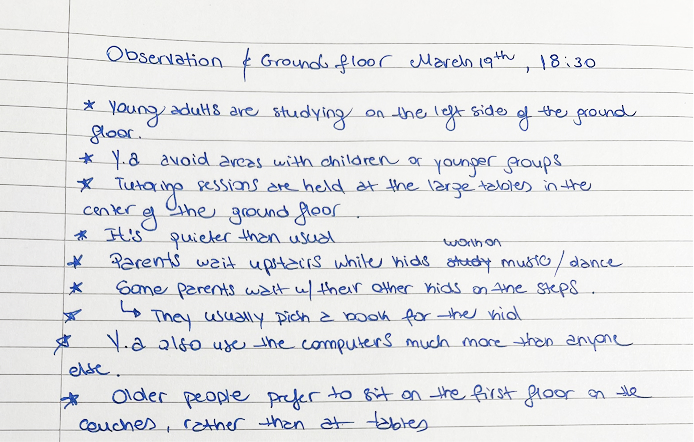 Observation & Ground floor March 19th, 18:30
* Young adults are studying on the left side of the ground
floor.
* Y.a avoid areas with children or younger groups
* Tutoring sessions are held at the large tables in the
center of the ground floor.
* It's quieter than usual
* Parents wait upstairs while kids study work on music/dance
* Some parents wait w/ their other kids on the steps.
* ↳ They usually pick a book for the kid
* Y.a also use the computers much more than anyone
else.
* Older people prefer to sit on the first floor on the
couches, rather than at tables